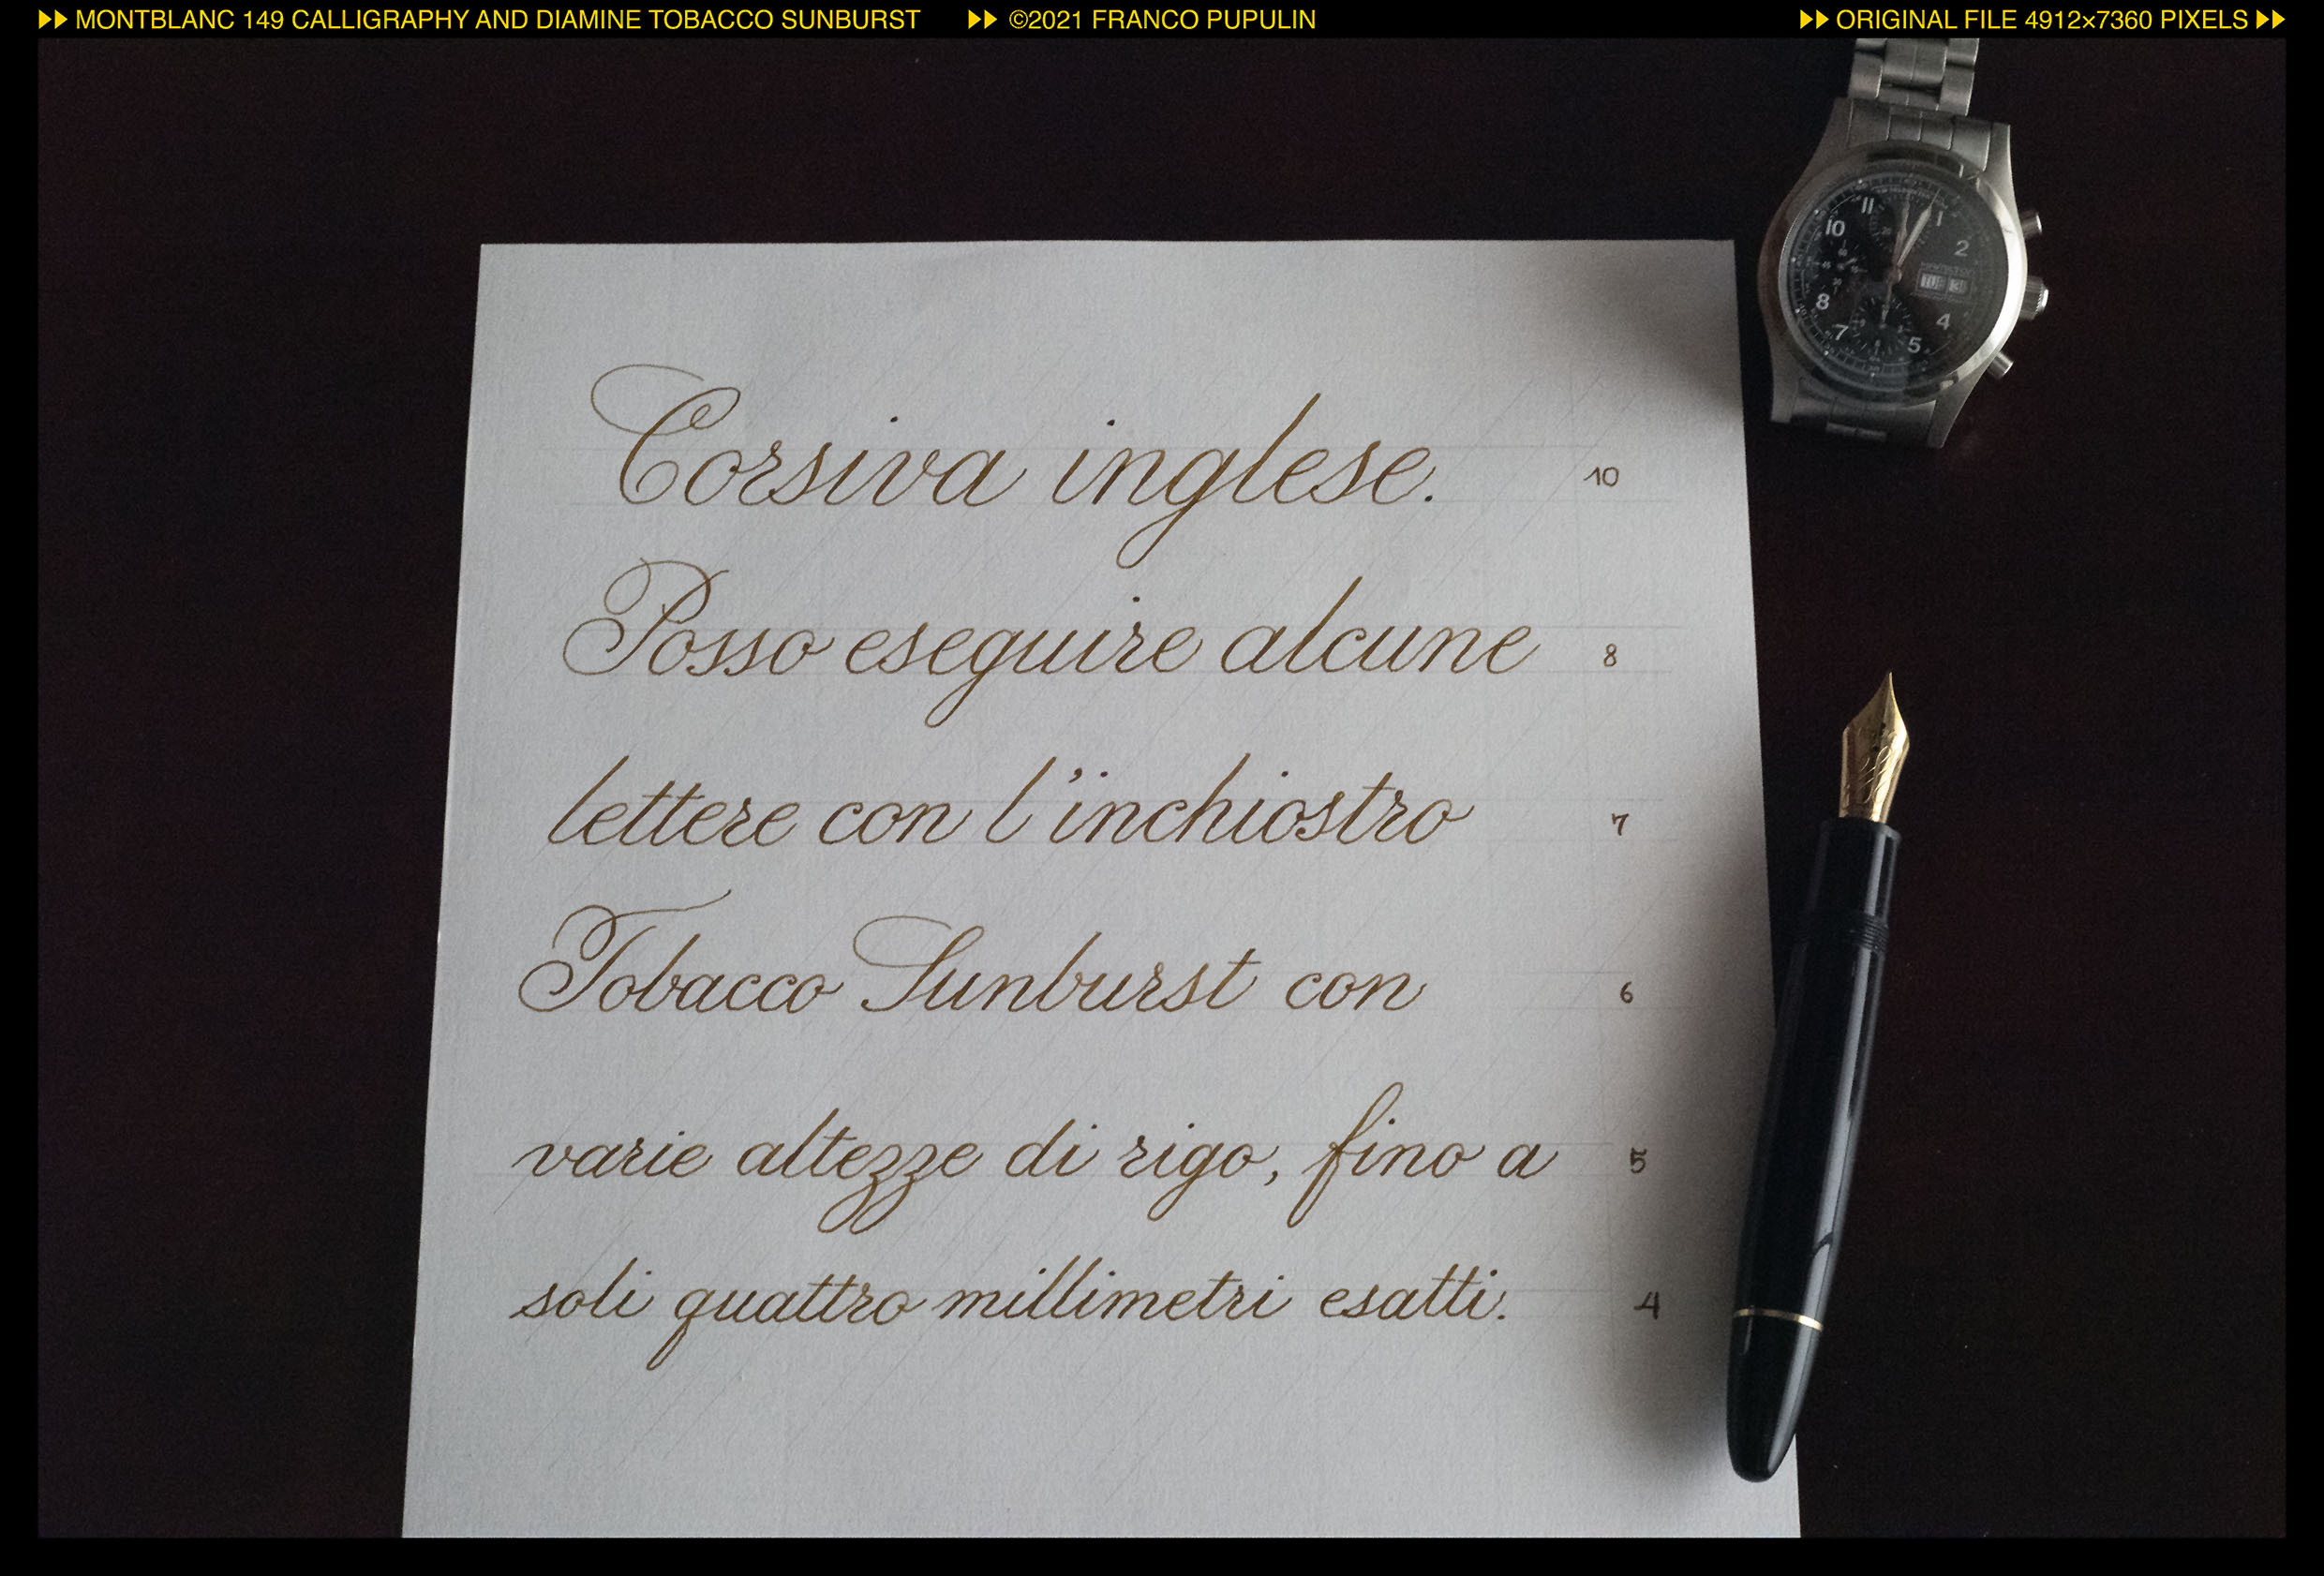 ▶▶ MONTBLANC 149 CALLIGRAPHY AND DIAMINE TOBACCO SUNBURST ▶▶ ©2021 FRANCO PUPULIN ▶▶ ORIGINAL FILE 4912×7360 PIXELS ▶▶
11 1
10 2
HAMILTON
TUE
8 4
7 5
Corsiva inglese. 10
Posso eseguire alcune 8
lettere con l'inchiostro 7
Tobacco Sunburst con 6
varie altezze di rigo, fino a 5
soli quattro millimetri esatti. 4